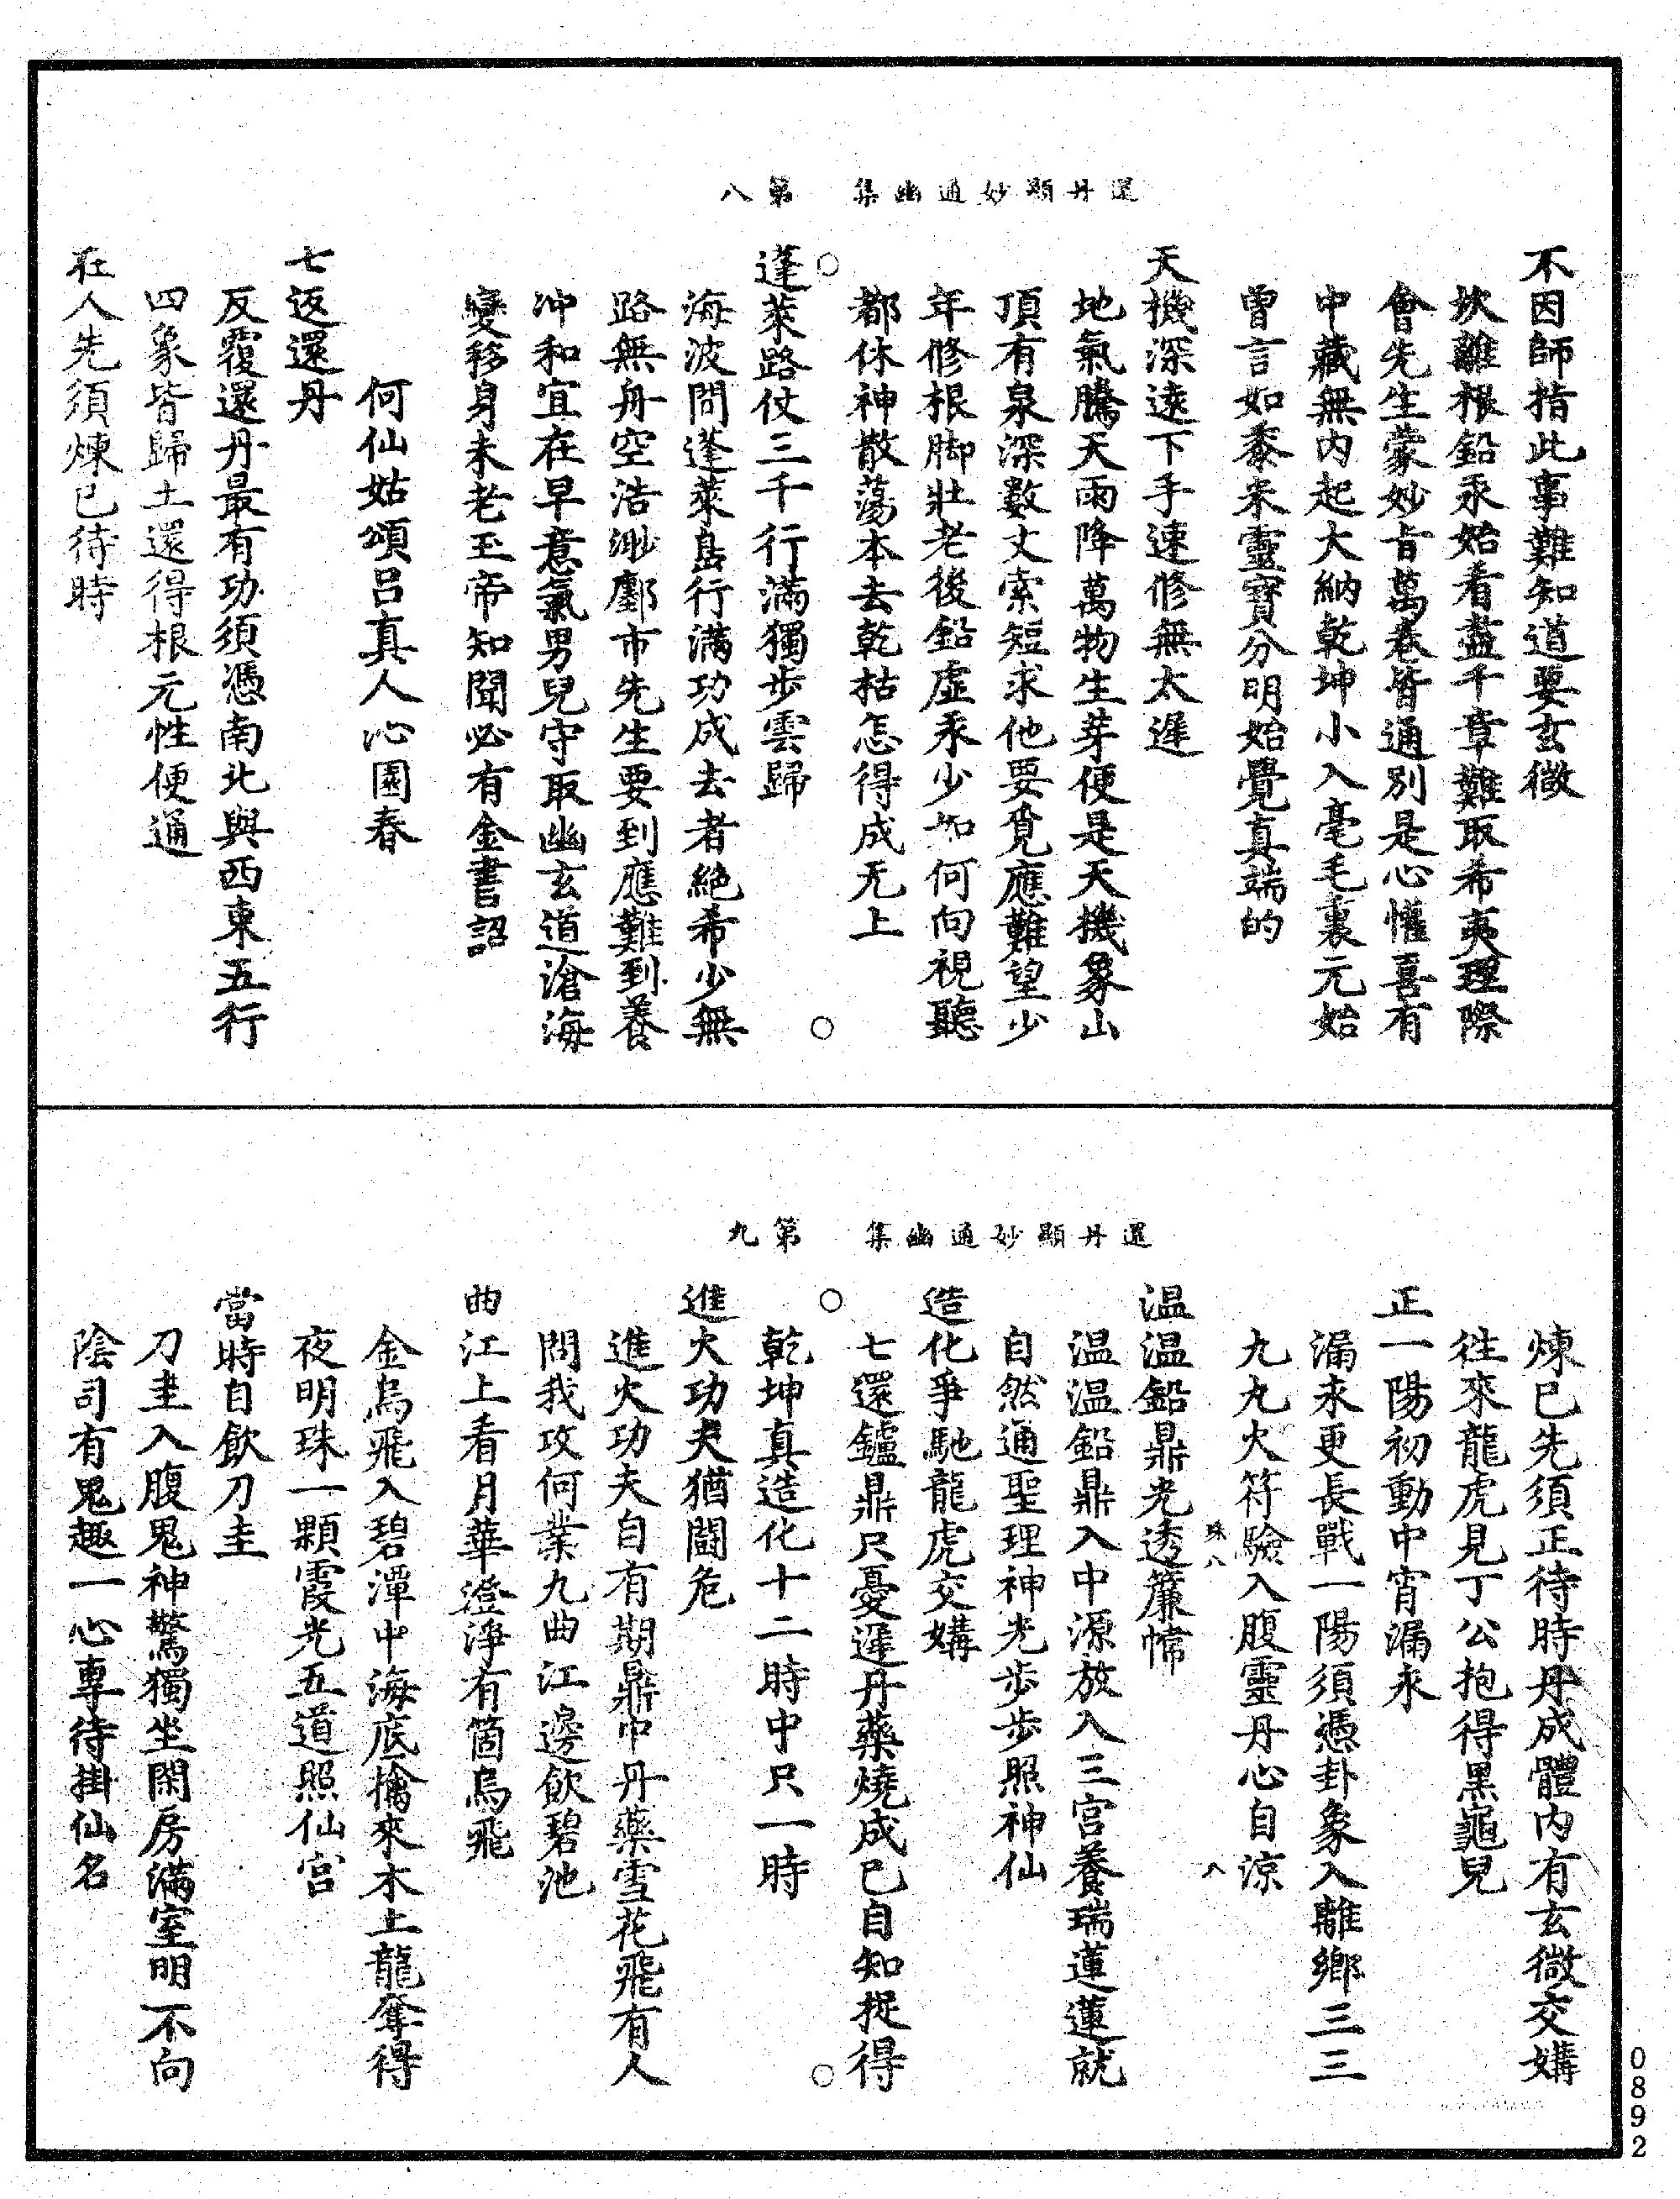 還丹顯妙通幽集　第八
不因師指此事難知道要玄微
坎離根鉛汞始看盡千章難取希夷理際
會先生蒙妙旨萬卷皆通別是心懽喜有
中藏無內起大納乾坤小入毫毛裏元始
曾言如黍米靈寶分明始覺真端的
天機深遠下手速修無太遲
地氣騰天雨降萬物生芽便是天機象山
頂有泉深數丈索短求他要覓應難望少
年修根脚壯老後鉛虛汞少如何向視聽
都休神散蕩本去乾枯怎得成无上
○
○
蓬萊路仗三千行行滿獨步雲歸
海波問蓬萊島行滿功成去者絕希少無
路無舟空浩渺鄽市先生要到應難到養
冲和宜在早意氣男兒守取幽玄道滄海
變移身未老玉帝知聞必有金書詔
何仙姑頌呂真人沁園春
七返還丹
反覆還丹最有功須憑南北與西東五行
四象皆歸土還得根元性便通
在人先須煉已待時
還丹顯妙通幽集　第九
煉已先須正待時丹成體內有玄微交媾
往來龍虎見丁公抱得黑龜兒
正一陽初動中宵漏永
漏永更長戰一陽須憑卦象入離鄉三三
九九火符驗入腹靈丹心自涼
珠八
八
温温鉛鼎光透簾幃
温温鉛鼎入中源放入三宮養瑞蓮蓮就
自然通聖理神光步步照神仙
造化爭馳龍虎交媾
七還鑪鼎尺憂遲丹藥燒成已自知捉得
○
○
乾坤真造化十二時中只一時
進火功夫猶鬪危
進火功夫自有期鼎中丹藥雪花飛有人
問我攻何業九曲江邊飲碧池
曲江上看月華澄淨有箇烏飛
金烏飛入碧潭中海底擒來木上龍奪得
夜明珠一顆霞光五道照仙宮
當時自飲刀圭
刀圭入腹鬼神驚獨坐閑房滿室明不向
陰司有鬼趣一心專待掛仙名
0892